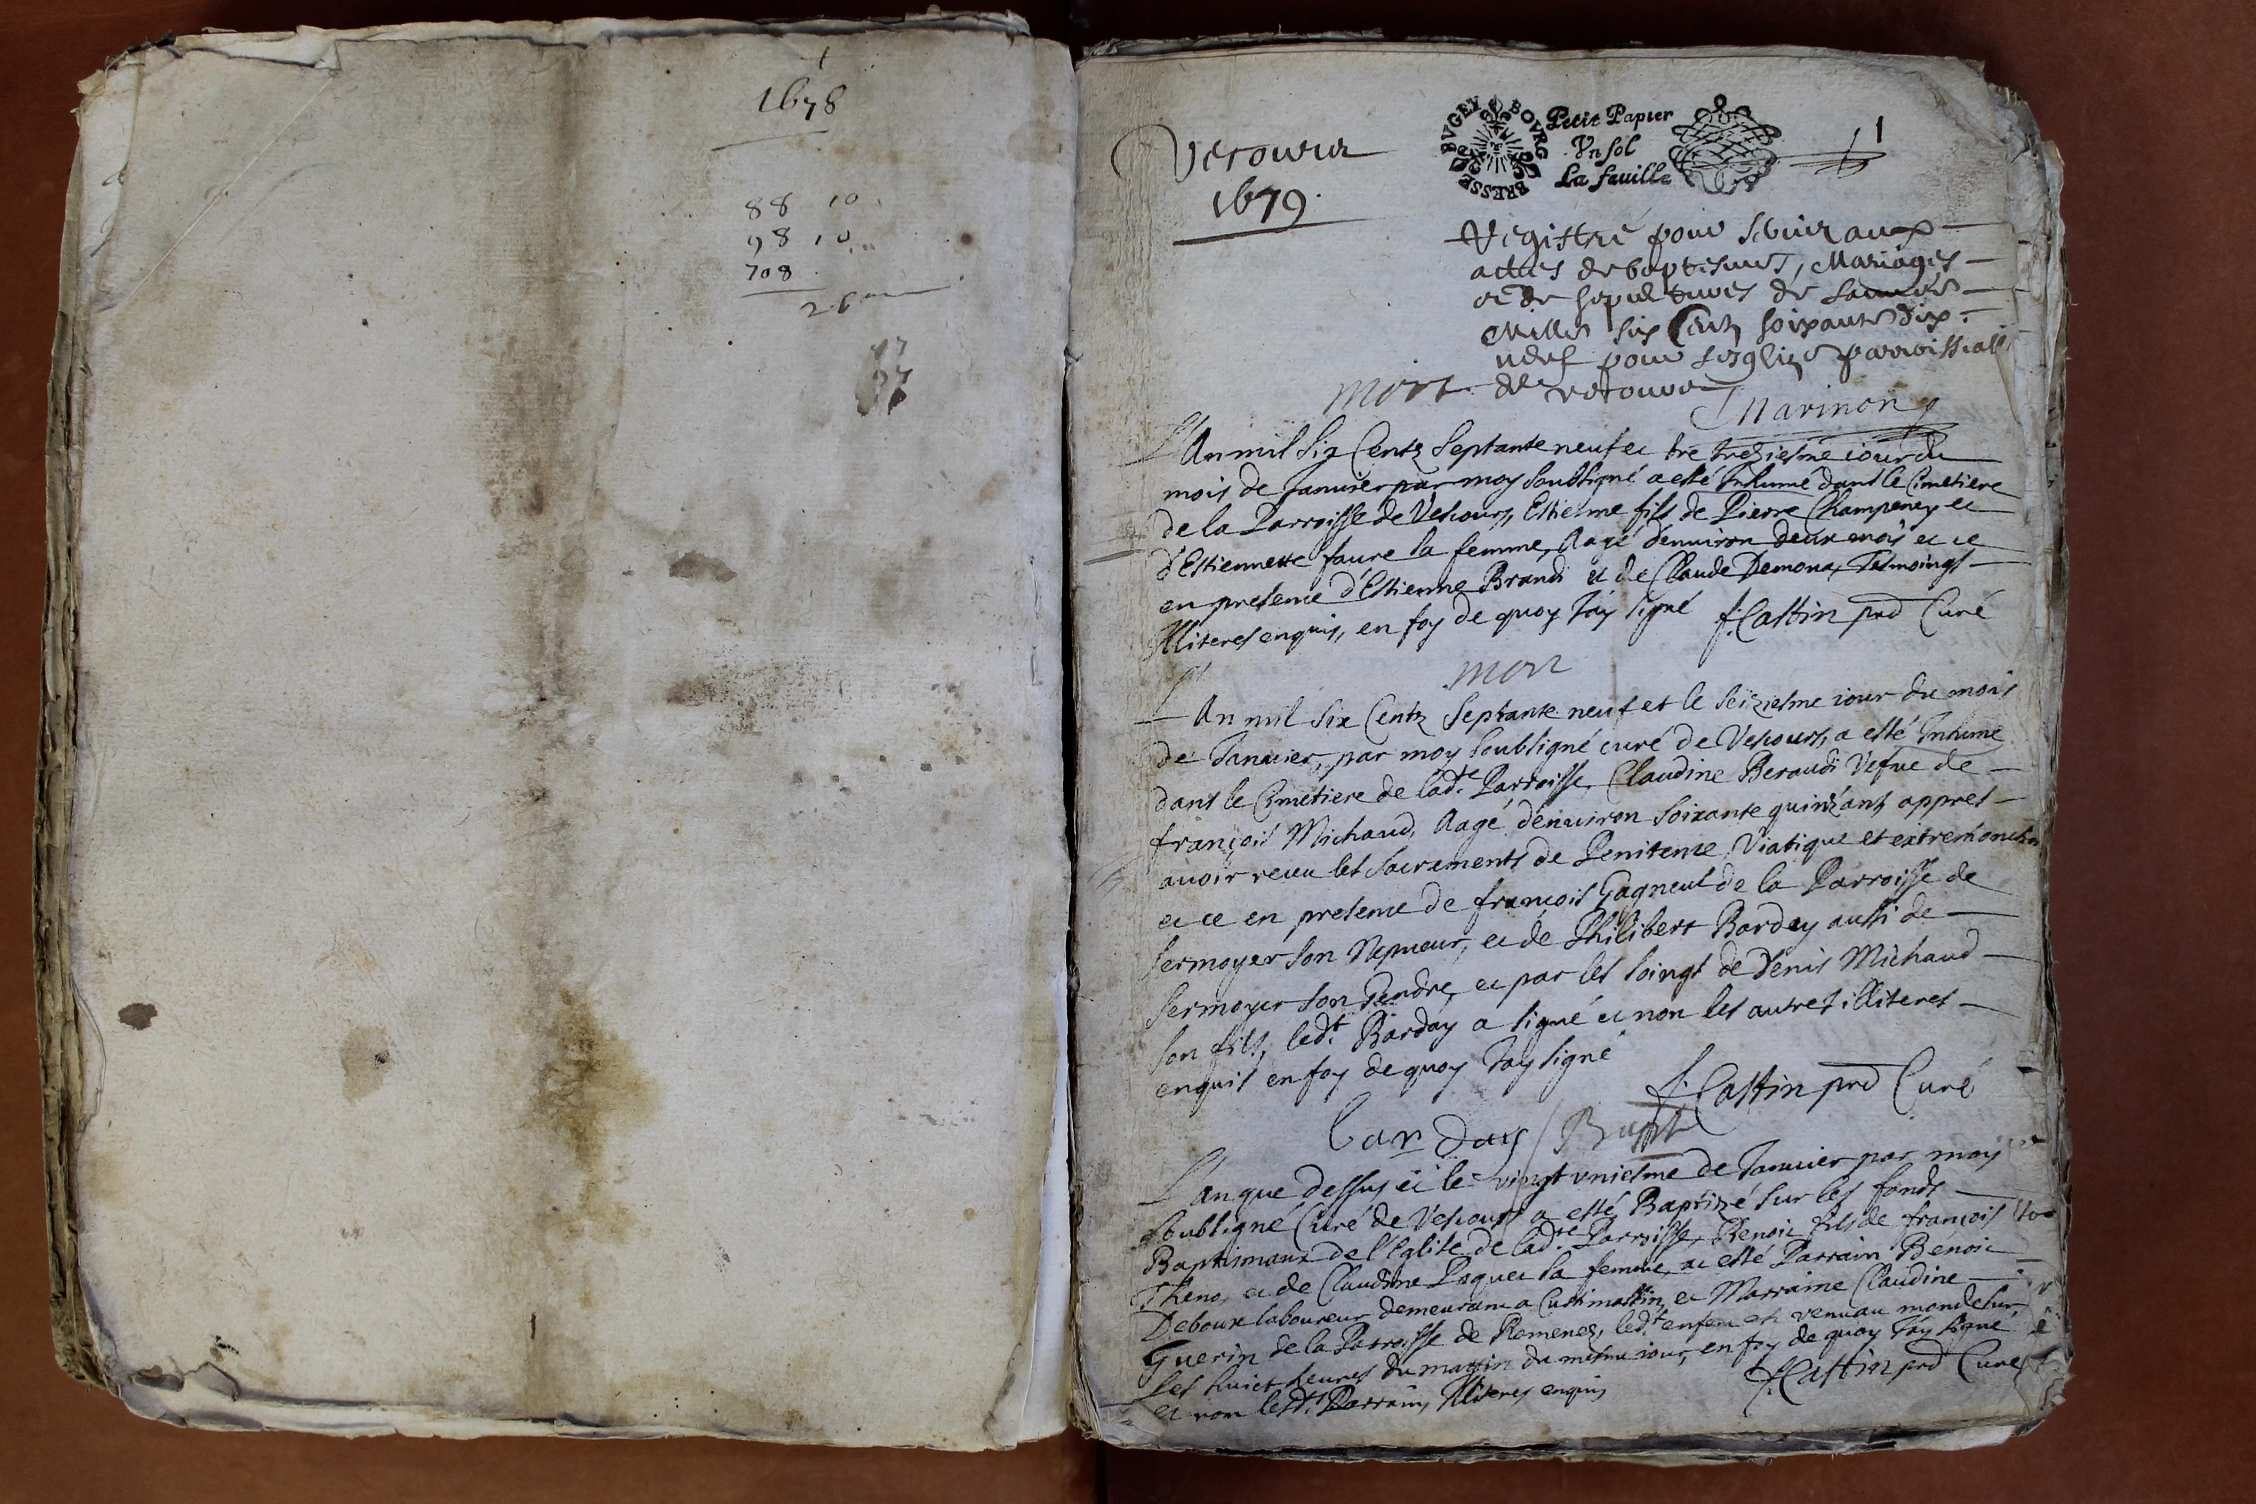 1678
88 10
98 10
708
26
Vecourz
1679.
BVGEY BOVRG BRESSE
Petit Papier
Vn sol
La feuille
1
Registre pour servir aux
actes de baptesmes, Mariages
et de sepultures de
Mille six Centz soixante dix
neuf pour l'esglize parroissialle
de vecourz
Marinon
mort
L'An mil Six Centz Septante neuf et tre treziesme iour du
mois de Januier par moy soubsigné a esté Inhumé dans le Cimetiere
de la Parroisse de Vescours, Estiesme fils de Pierre Champenay et
d'Estiennette faure sa femme, Aagé d'enuiron deux mois et ce
en presence d'Estienne Brandi et de Claude Demona, Tesmoings
Illiteres enquis, en foy de quoy J'ay signé f. Castin prd Curé
mort
L'An mil Six Centz Septante neuf et le seiziesme iour du mois
de Januier, par moy soubsigné curé de Vescours, a esté Inhumé
dans le Cimetiere de lad.te Parroisse, Claudine Beraudi Vefue de
françois Michaud, Aagé d'enuiron soixante quinz'ans appres
auoir receu les sacrements de Penitence, Viatique et extremonction
et ce en presence de françois Gagneul de la Parroisse de
Sermoyer son Nepueur, et de Philibert Barday aussi de
Sermoyer son Gendre, et par les soings de Denis Michaud
son fils, led.t Barday a signé et non les autres illiteres
enquis en foy de quoy J'ay signé
f. Castin prd Curé
barday
Bapt
L'an que dessus et le vingt vniesme de Januier par moy
soubsigné Curé de Vescours a esté Baptizé sur les fonds
Baptismaux de l'Eglise de lad.te Parroisse, Benoit fils de françois
Theno, et de Claudine Poquet sa femme, a esté Parrain Benoit
Deboux laboureur demeurant a Curtimastin, et Marraine Claudine
Guerin de la Parroisse de Romenez, led.t enfen est venu au monde sur
les huict heures du mattin du mesme iour, en foy de quoy J'ay signé
et non lesd.ts Parrain, Illiteres enquis f. Castin prd Curé